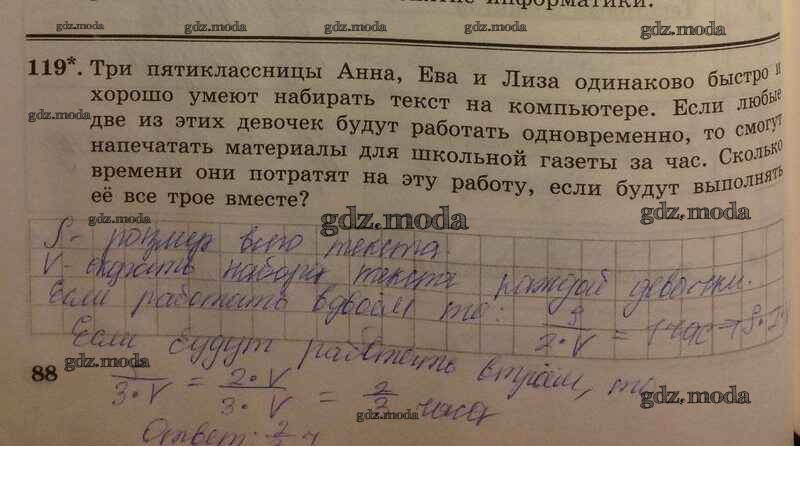 информатики.
gdz.moda gdz.moda gdz.moda gdz.moda
119*. Три пятиклассницы Анна, Ева и Лиза одинаково быстро и
хорошо умеют набирать текст на компьютере. Если любые
gdz.moda
две из этих девочек будут работать одновременно, то смогут
напечатать материалы для школьной газеты за час. Сколько
времени они потратят на эту работу, если будут выполнять
её все трое вместе?
gdz.moda gdz.moda gdz.moda
S - размер всего текста.
V - скорость набора текста каждой девочки.
Если работать вдвоём то: S/2·V = 1 час
Если будут работать втроём, то
88
gdz.moda gdz.moda gdz.moda
3·V = 2·V/3·V = 2/3 часа
gdz.moda gdz.moda gdz.moda
Ответ: 2/3 ч